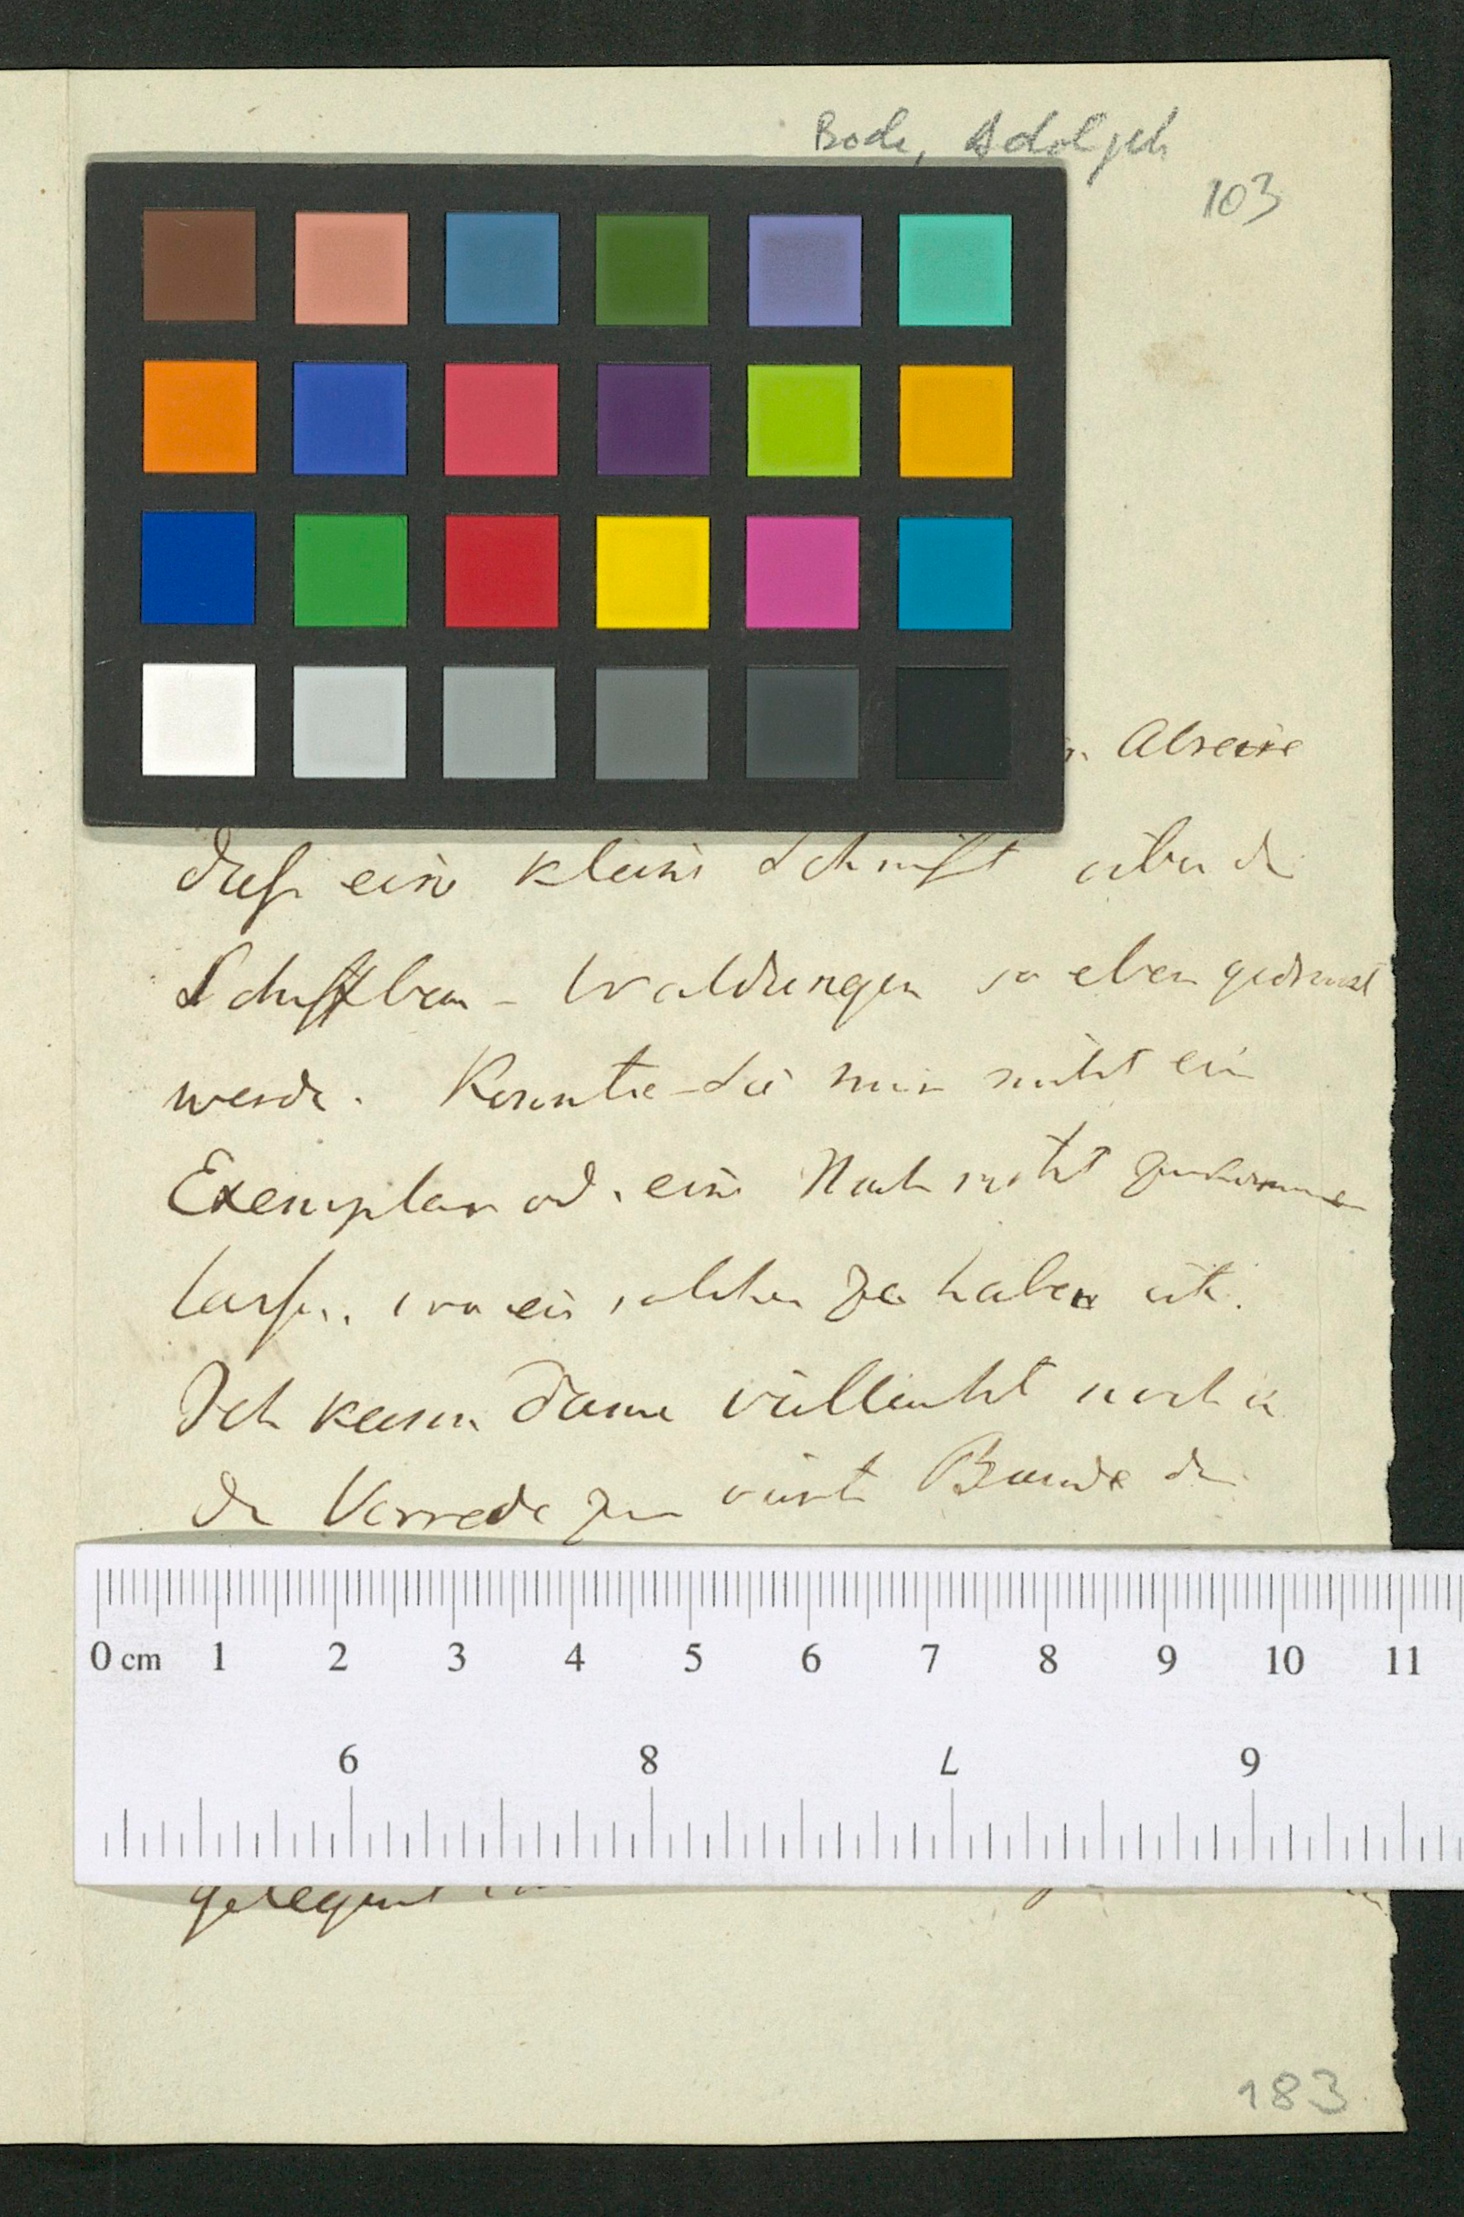 Bode, Adolph
103
Abreise
daß eine kleine Schrift über die
Schiffbau-Waldungen so eben gedruckt
werde. Konnten Sie mir nicht ein
Exemplar od. eine Nachricht zukommen
lassen, wo ein solches zu haben ist.
Ich kann dann vielleicht noch in
der Vorrede zum vierten Bande der
0 cm 1 2 3 4 5 6 7 8 9 10 11
9 8 7 6
183